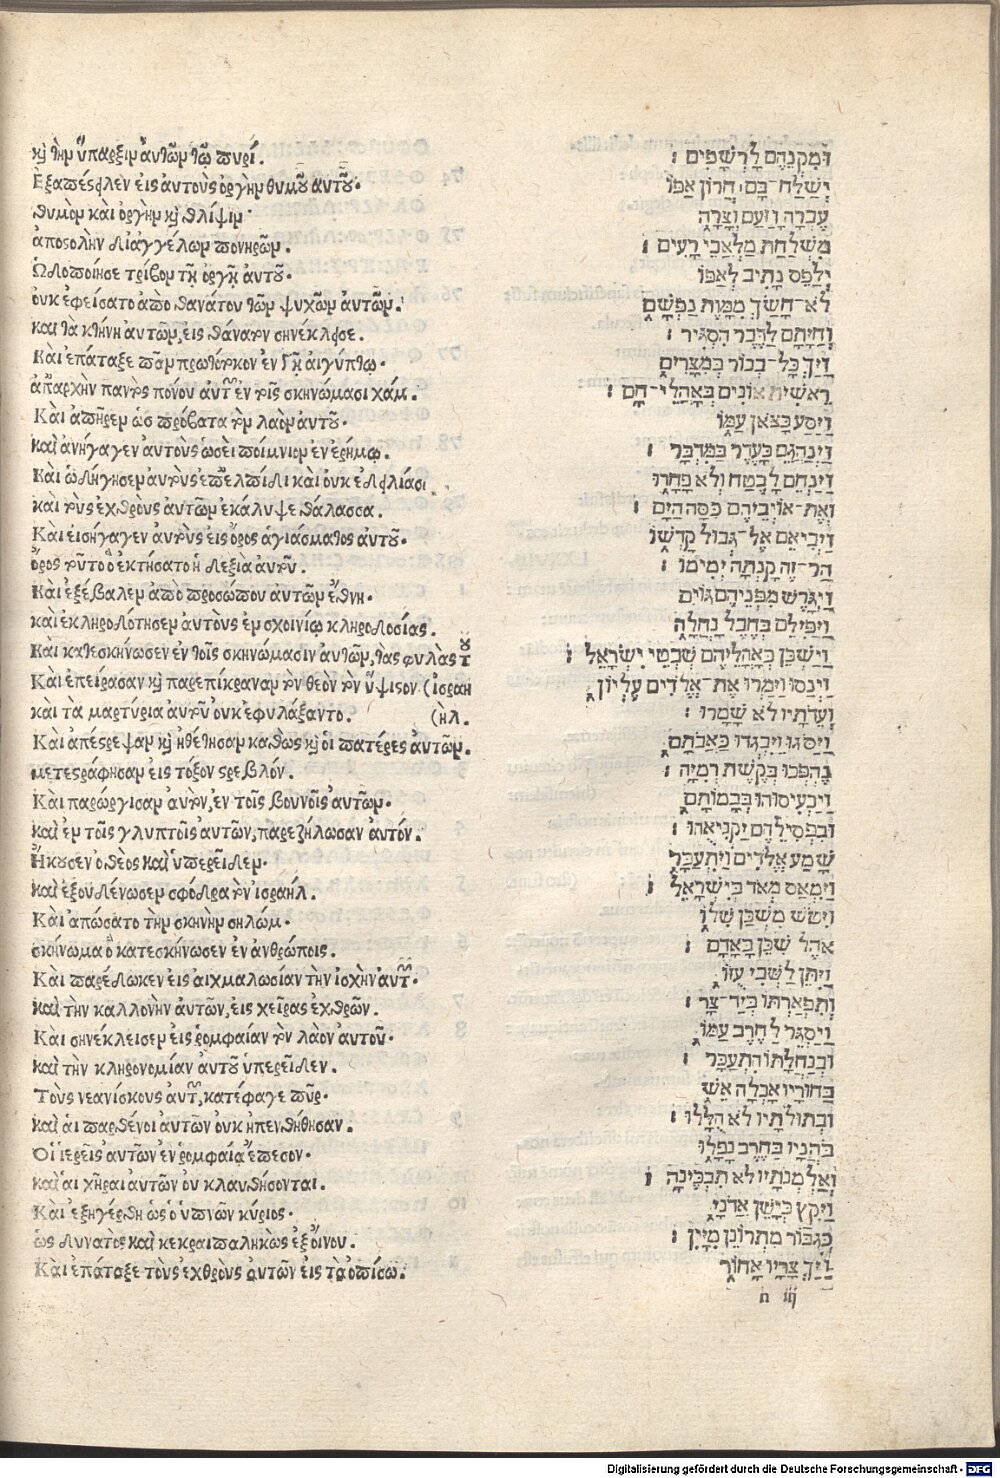 καὶ τὴν ὕπαρξιν αὐτῶν τῷ πυρί.
Ἐξαπέστειλεν εἰς αὐτοὺς ὀργὴν θυμοῦ αὐτοῦ·
θυμὸν καὶ ὀργὴν καὶ θλίψιν·
ἀποστολὴν δι ἀγγέλων πονηρῶν.
Ὡδοποίησε τρίβον τῇ ὀργῇ αὐτοῦ·
οὐκ ἐφείσατο ἀπὸ θανάτου τῶν ψυχῶν αὐτῶν.
καὶ τὰ κτήνη αὐτῶν, εἰς θάνατον συνέκλεισε.
Καὶ ἐπάταξε πᾶν πρωτότοκον ἐν Γῇ αἰγύπτῳ·
ἀπαρχὴν παντὸς πόνου αὐτῶν ἐν τοῖς σκηνώμασι χάμ.
Καὶ ἀπῆρεν ὡς πρόβατα τὸν λαὸν αὐτοῦ·
καὶ ἀνήγαγεν αὐτοὺς ὡσεὶ ποίμνιον ἐν ἐρήμῳ.
Καὶ ὡδήγησεν αὐτοὺς ἐπ ἐλπίδι καὶ οὐκ ἐδειλίασ
καὶ τοὺς ἐχθροὺς αὐτῶν ἐκάλυψε θάλασσα.
Καὶ εἰσήγαγεν αὐτοὺς εἰς ὄρος ἁγιάσματος αὐτοῦ·
ὄρος τοῦτο ὃ ἐκτήσατο ἡ δεξιὰ αὐτοῦ.
Καὶ ἐξέβαλεν ἀπὸ προσώπου αὐτῶν ἔθνη·
καὶ ἐκληροδότησεν αὐτοὺς ἐν σχοινίῳ κληροδοσίας.
Καὶ κατεσκήνωσεν ἐν τοῖς σκηνώμασιν αὐτῶν, τὰς φυλὰς τοῦ
Καὶ ἐπείρασαν καὶ παρεπίκραναν τὸν θεὸν τὸν ὕψιστον (ἰσραη
καὶ τὰ μαρτύρια αὐτοῦ οὐκ ἐφυλάξαντο. (ὴλ.
Καὶ ἀπέστρεψαν καὶ ἠθέτησαν καθὼς καὶ οἱ πατέρες αὐτῶν.
μετεστράφησαν εἰς τόξον στρεβλόν.
Καὶ παρώργισαν αὐτὸν, ἐν τοῖς βουνοῖς αὐτῶν·
καὶ ἐν τοῖς γλυπτοῖς αὐτῶν, παρεζήλωσαν αὐτόν.
Ἤκουσεν ὁ θεὸς καὶ ὑπερεῖδεν·
καὶ ἐξουδένωσεν σφόδρα τὸν ἰσραήλ.
Καὶ ἀπώσατο τὴν σκηνὴν σηλώμ·
σκήνωμα ὃ κατεσκήνωσεν ἐν ἀνθρώποις.
Καὶ παρέδωκεν εἰς αἰχμαλωσίαν τὴν ἰσχὴν αὐτῶν·
καὶ τὴν καλλονὴν αὐτῶν, εἰς χεῖρας ἐχθρῶν.
Καὶ συνέκλεισεν εἰς ῥομφαίαν τὸν λαὸν αὐτοῦ·
καὶ τὴν κληρονομίαν αὐτοῦ ὑπερεῖδεν.
Τοὺς νεανίσκους αὐτῶν, κατέφαγε πῦρ·
καὶ αἱ παρθένοι αὐτῶν οὐκ ἐπενθήθησαν.
Οἱ ἱερεῖς αὐτῶν ἐν ῥομφαίᾳ ἔπεσον·
καὶ αἱ χῆραι αὐτῶν οὐ κλαυθήσονται.
Καὶ ἐξηγέρθη ὡς ὁ ὑπνῶν κύριος·
ὡς δυνατὸς καὶ κεκραιπαληκὼς ἐξ οἴνου.
Καὶ ἐπάταξε τοὺς ἐχθροὺς αὐτῶν εἰς τὰ ὀπίσω.
וּמִקְנֵהֶם לָרְשָׁפִים ׃
יְשַׁלַּח־בָּם חֲרוֹן אַפּוֹ
עֶבְרָה וָזַעַם וְצָרָה
מִשְׁלַחַת מַלְאֲכֵי רָעִים ׃
יְפַלֵּס נָתִיב לְאַפּוֹ
לֹא־חָשַׂךְ מִמָּוֶת נַפְשָׁם
וְחַיָּתָם לַדֶּבֶר הִסְגִּיר ׃
וַיַּךְ כָּל־בְּכוֹר בְּמִצְרָיִם
רֵאשִׁית אוֹנִים בְּאָהֳלֵי־חָם ׃
וַיַּסַּע כַּצֹּאן עַמּוֹ
וַיְנַהֲגֵם כַּעֵדֶר בַּמִּדְבָּר ׃
וַיַּנְחֵם לָבֶטַח וְלֹא פָחָדוּ
וְאֶת־אוֹיְבֵיהֶם כִּסָּה הַיָּם ׃
וַיְבִיאֵם אֶל־גְּבוּל קָדְשׁוֹ
הַר־זֶה קָנְתָה יְמִינוֹ ׃
וַיְגָרֶשׁ מִפְּנֵיהֶם גּוֹיִם
וַיַּפִּילֵם בְּחֶבֶל נַחֲלָה
וַיַּשְׁכֵּן בְּאָהֳלֵיהֶם שִׁבְטֵי יִשְׂרָאֵל ׃
וַיְנַסּוּ וַיַּמְרוּ אֶת־אֱלֹדִים עֶלְיוֹן
וְעֵדֹתָיו לֹא שָׁמָרוּ ׃
וַיִּסֹּגוּ וַיִּבְגְּדוּ כַּאֲבֹתָם
נֶהְפְּכוּ כְּקֶשֶׁת רְמִיָּה ׃
וַיַּכְעִיסוּהוּ בְּבָמוֹתָם
וּבִפְסִילֵיהֶם יַקְנִיאֻהוּ ׃
שָׁמַע אֱלֹדִים וַיִּתְעַבָּר
וַיִּמְאַס מְאֹד בְּיִשְׂרָאֵל ׃
וַיִּטֹּשׁ מִשְׁכַּן שִׁלוֹ
אֹהֶל שִׁכֵּן בָּאָדָם ׃
וַיִּתֵּן לַשְּׁבִי עֻזּוֹ
וְתִפְאַרְתּוֹ בְּיַד־צָר ׃
וַיַּסְגֵּר לַחֶרֶב עַמּוֹ
וּבְנַחֲלָתוֹ הִתְעַבָּר ׃
בַּחוּרָיו אָכְלָה אֵשׁ
וּבְתוּלֹתָיו לֹא הֻלָּלוּ ׃
כֹּהֲנָיו בַּחֶרֶב נָפָלוּ
וְאַלְמְנֹתָיו לֹא תִבְכֶּינָה ׃
וַיִּקַץ כְּיָשֵׁן אֲדֹנָי
כְּגִבּוֹר מִתְרוֹנֵן מִיָּיִן ׃
וַיַּךְ צָרָיו אָחוֹר
n iij
Digitalisierung gefördert durch die Deutsche Forschungsgemeinschaft - DFG